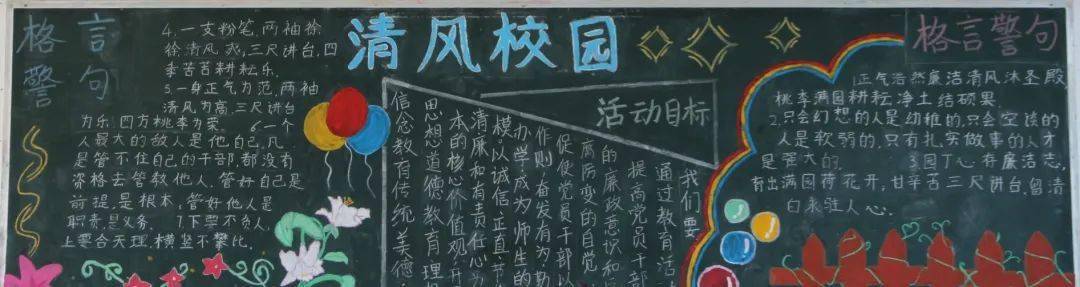 格言
警句
4.一支粉笔,两袖徐
徐清风,三尺讲台,四
季苦苦耕耘乐.
5.一身正气为范,两袖
清风为高三尺讲台
为乐.四方桃李为荣. 6一个
人最大的敌人是他自己,凡
是管不住自己的干部,都没有
资格去管教他人.管好自己是
前提是根本,管好他人是
职责,是义务. 7下要不负人,
上要合天理,横竖不攀比.
清风校园
活动目标
我们要
通过教育活
提高党员干部
的廉政意识和
腐防变的自觉
促使党员干部以
作则,有发有为勤
办学,成为师生的
模.以诚信、正直、节
清廉和有责任心为
本的核心价值观开
思想道德教育理
信念教育传统美德
格言警句
1.正气浩然廉洁清风沐圣殿
桃李满园耕耘净土结硕果.
2.只会幻想的人是幼稚的,只会空谈的
人是软弱的,只有扎实做事的人才
是强大的. 3园丁心存廉洁志,
育出满园荷花开,甘辛苦三尺讲台,留清
白永驻人心.